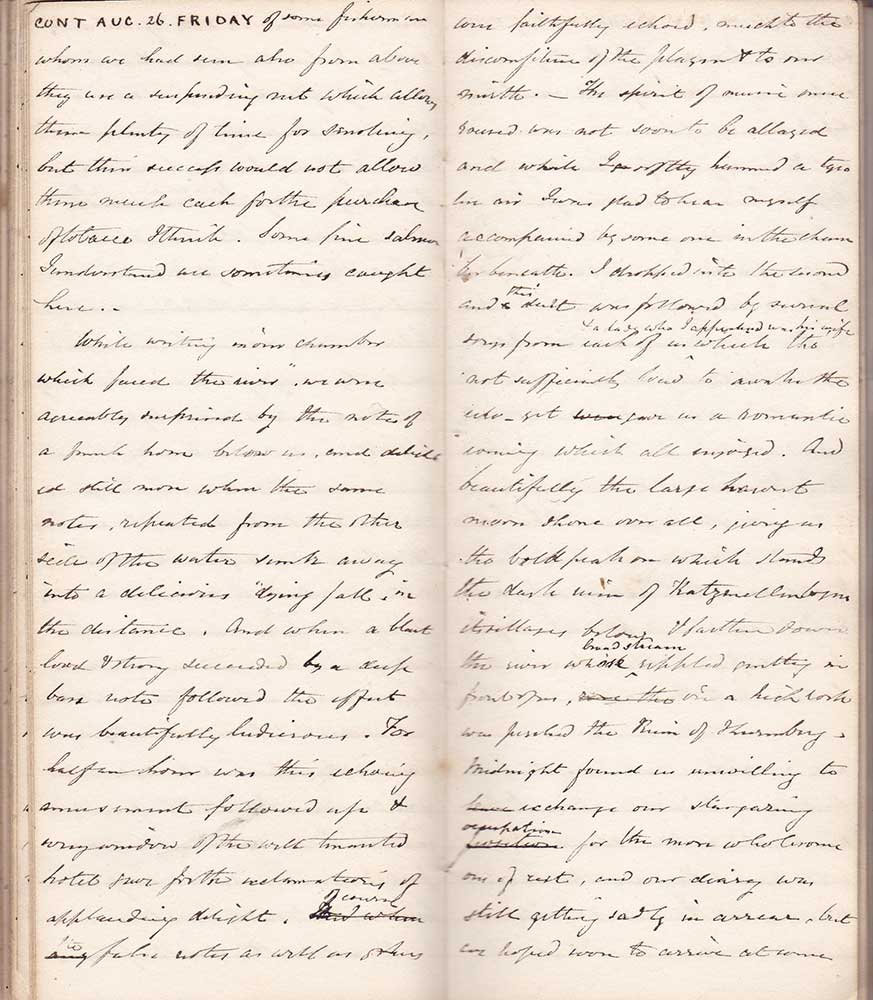 CONT AUG. 26. FRIDAY of some fishermen
whom we had seen also from above
they use a suspending net which allows
them plenty of time for smoking,
but their success would not allow
them much cash for the purchase
of tobacco I think. Some fine salmon
I understand are sometimes caught
here. _
While writing in our chamber
which faced the river, we were
agreeably surprised by the notes of
a french horn below us, and delight
ed still more when the same
notes, repeated from the other
side of the water sunk away
into a delicious "dying fall" in
the distance. And when a blast
loud & strong succeeded by a deep
bass note followed the effect
was beautifully ludicrous. For
half an hour was this echoing
amusement followed up &
every window of the well tenanted
hotel gave forth exclamations of
applauding delight. Of course
the false notes as well as others
were faithfully echoed, much to the
discomfiture of the player & to our
mirth. _ The spirit of music once
roused was not soon to be allayed
and while I softly hummed a tyro
lese air I was glad to hear myself
accompanied by some one in the cham
ber beneath. I dropped into the second
and this duet was followed by several
& a lady who I apprehend was his wife
songs from each of us which tho
not sufficiently loud to awake the
echo _ yet gave us a romantic
evening which all enjoyed. And
beautifully the large harvest
moon shone over all, giving us
the bold peak on which stands
the dark ruin of Katzenellenbogen
its villages below & farther down
broad stream
the river whose rippled prettily in
front of us, on a high rock
was perched the Ruin of Thurmberg.
Midnight found us unwilling to
exchange our stargazing
occupation for the more wholesome
one of rest, and our diary was
still getting sadly in arrear, but
we hoped soon to arrive at some